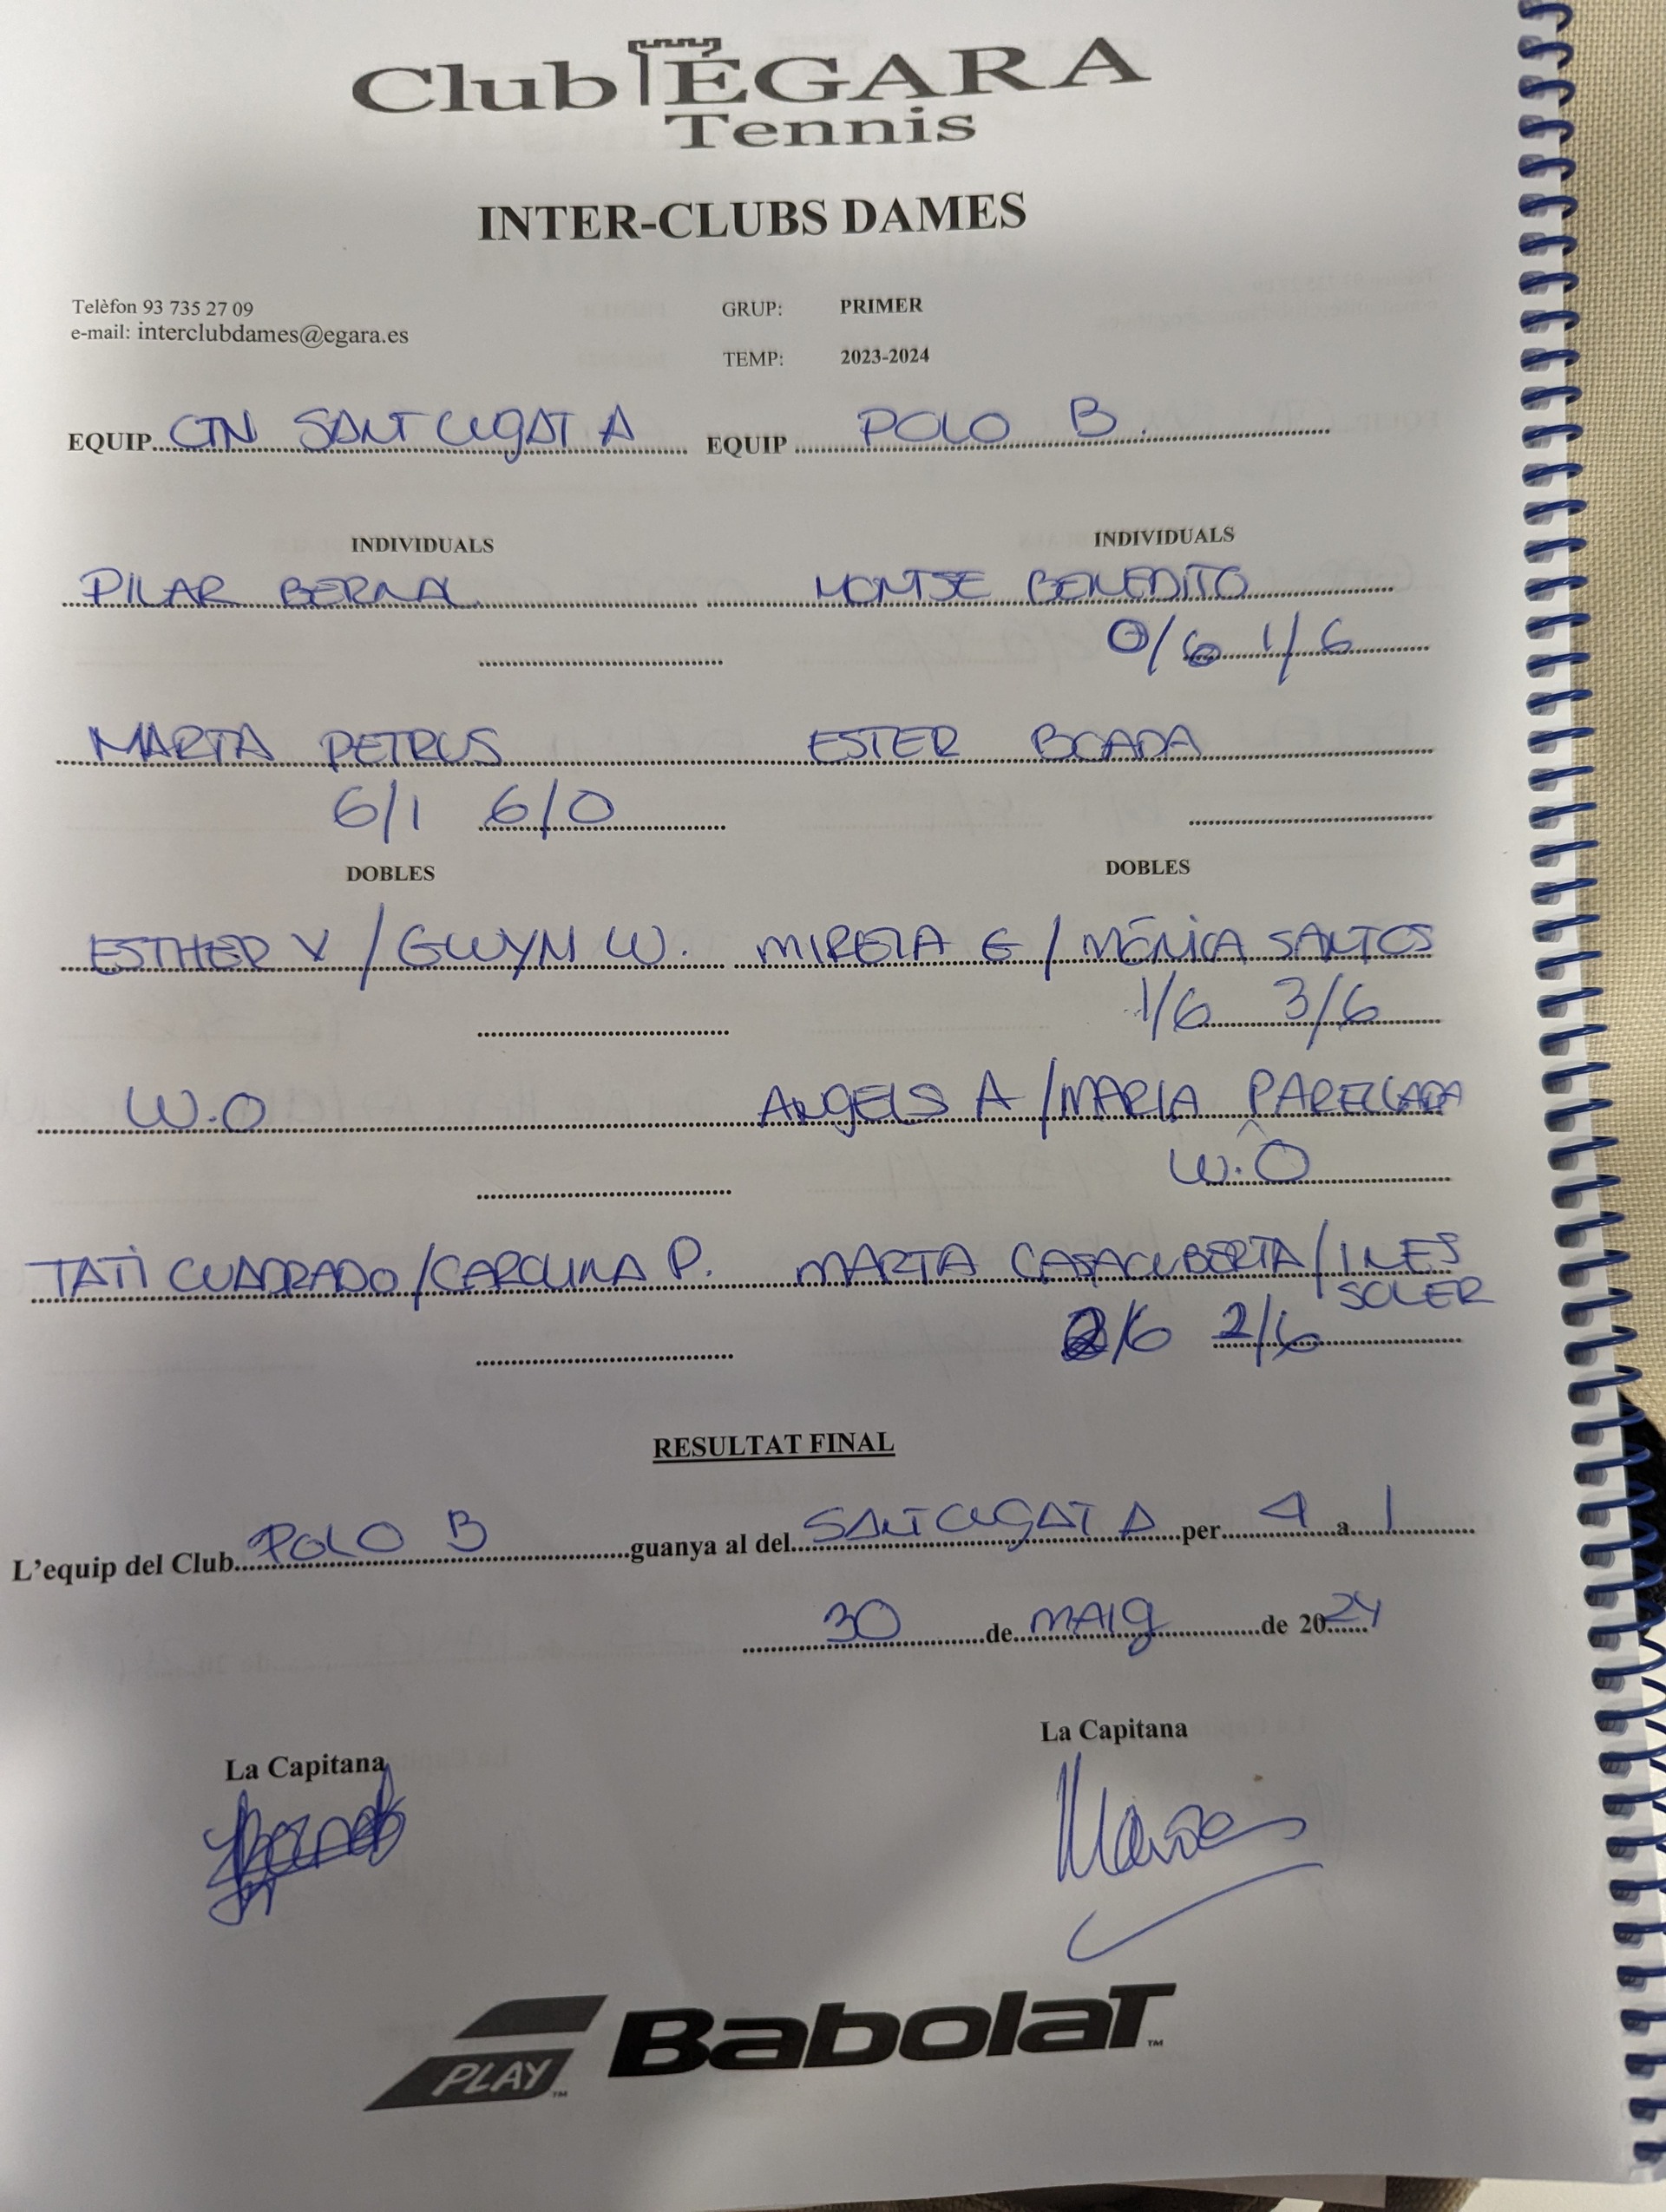 Club ÈGARA
Tennis
INTER-CLUBS DAMES
Telèfon 93 735 27 09 GRUP: PRIMER
e-mail: interclubdames@egara.es
TEMP: 2023-2024
EQUIP CTN SANT CUGAT A EQUIP POLO B.
INDIVIDUALS INDIVIDUALS
PILAR BERNAL MONTSE BENEDITO
0/6 1/6
MARTA PETRUS ESTER BOADA
6/1 6/0
DOBLES DOBLES
ESTHER V / GWYN W. MIREIA G / MÓNICA SANTOS
1/6 3/6
W.O ANGELS A / MARIA PARELLADA
W.O
TATI CUADRADO / CAROLINA P. MARTA CASACUBERTA / INES
SOLER
2/6 2/6
RESULTAT FINAL
L'equip del Club POLO B guanya al del SANT CUGAT A per 4 a 1
30 de MAIG de 2024
La Capitana La Capitana
PLAY™ BabolaT™